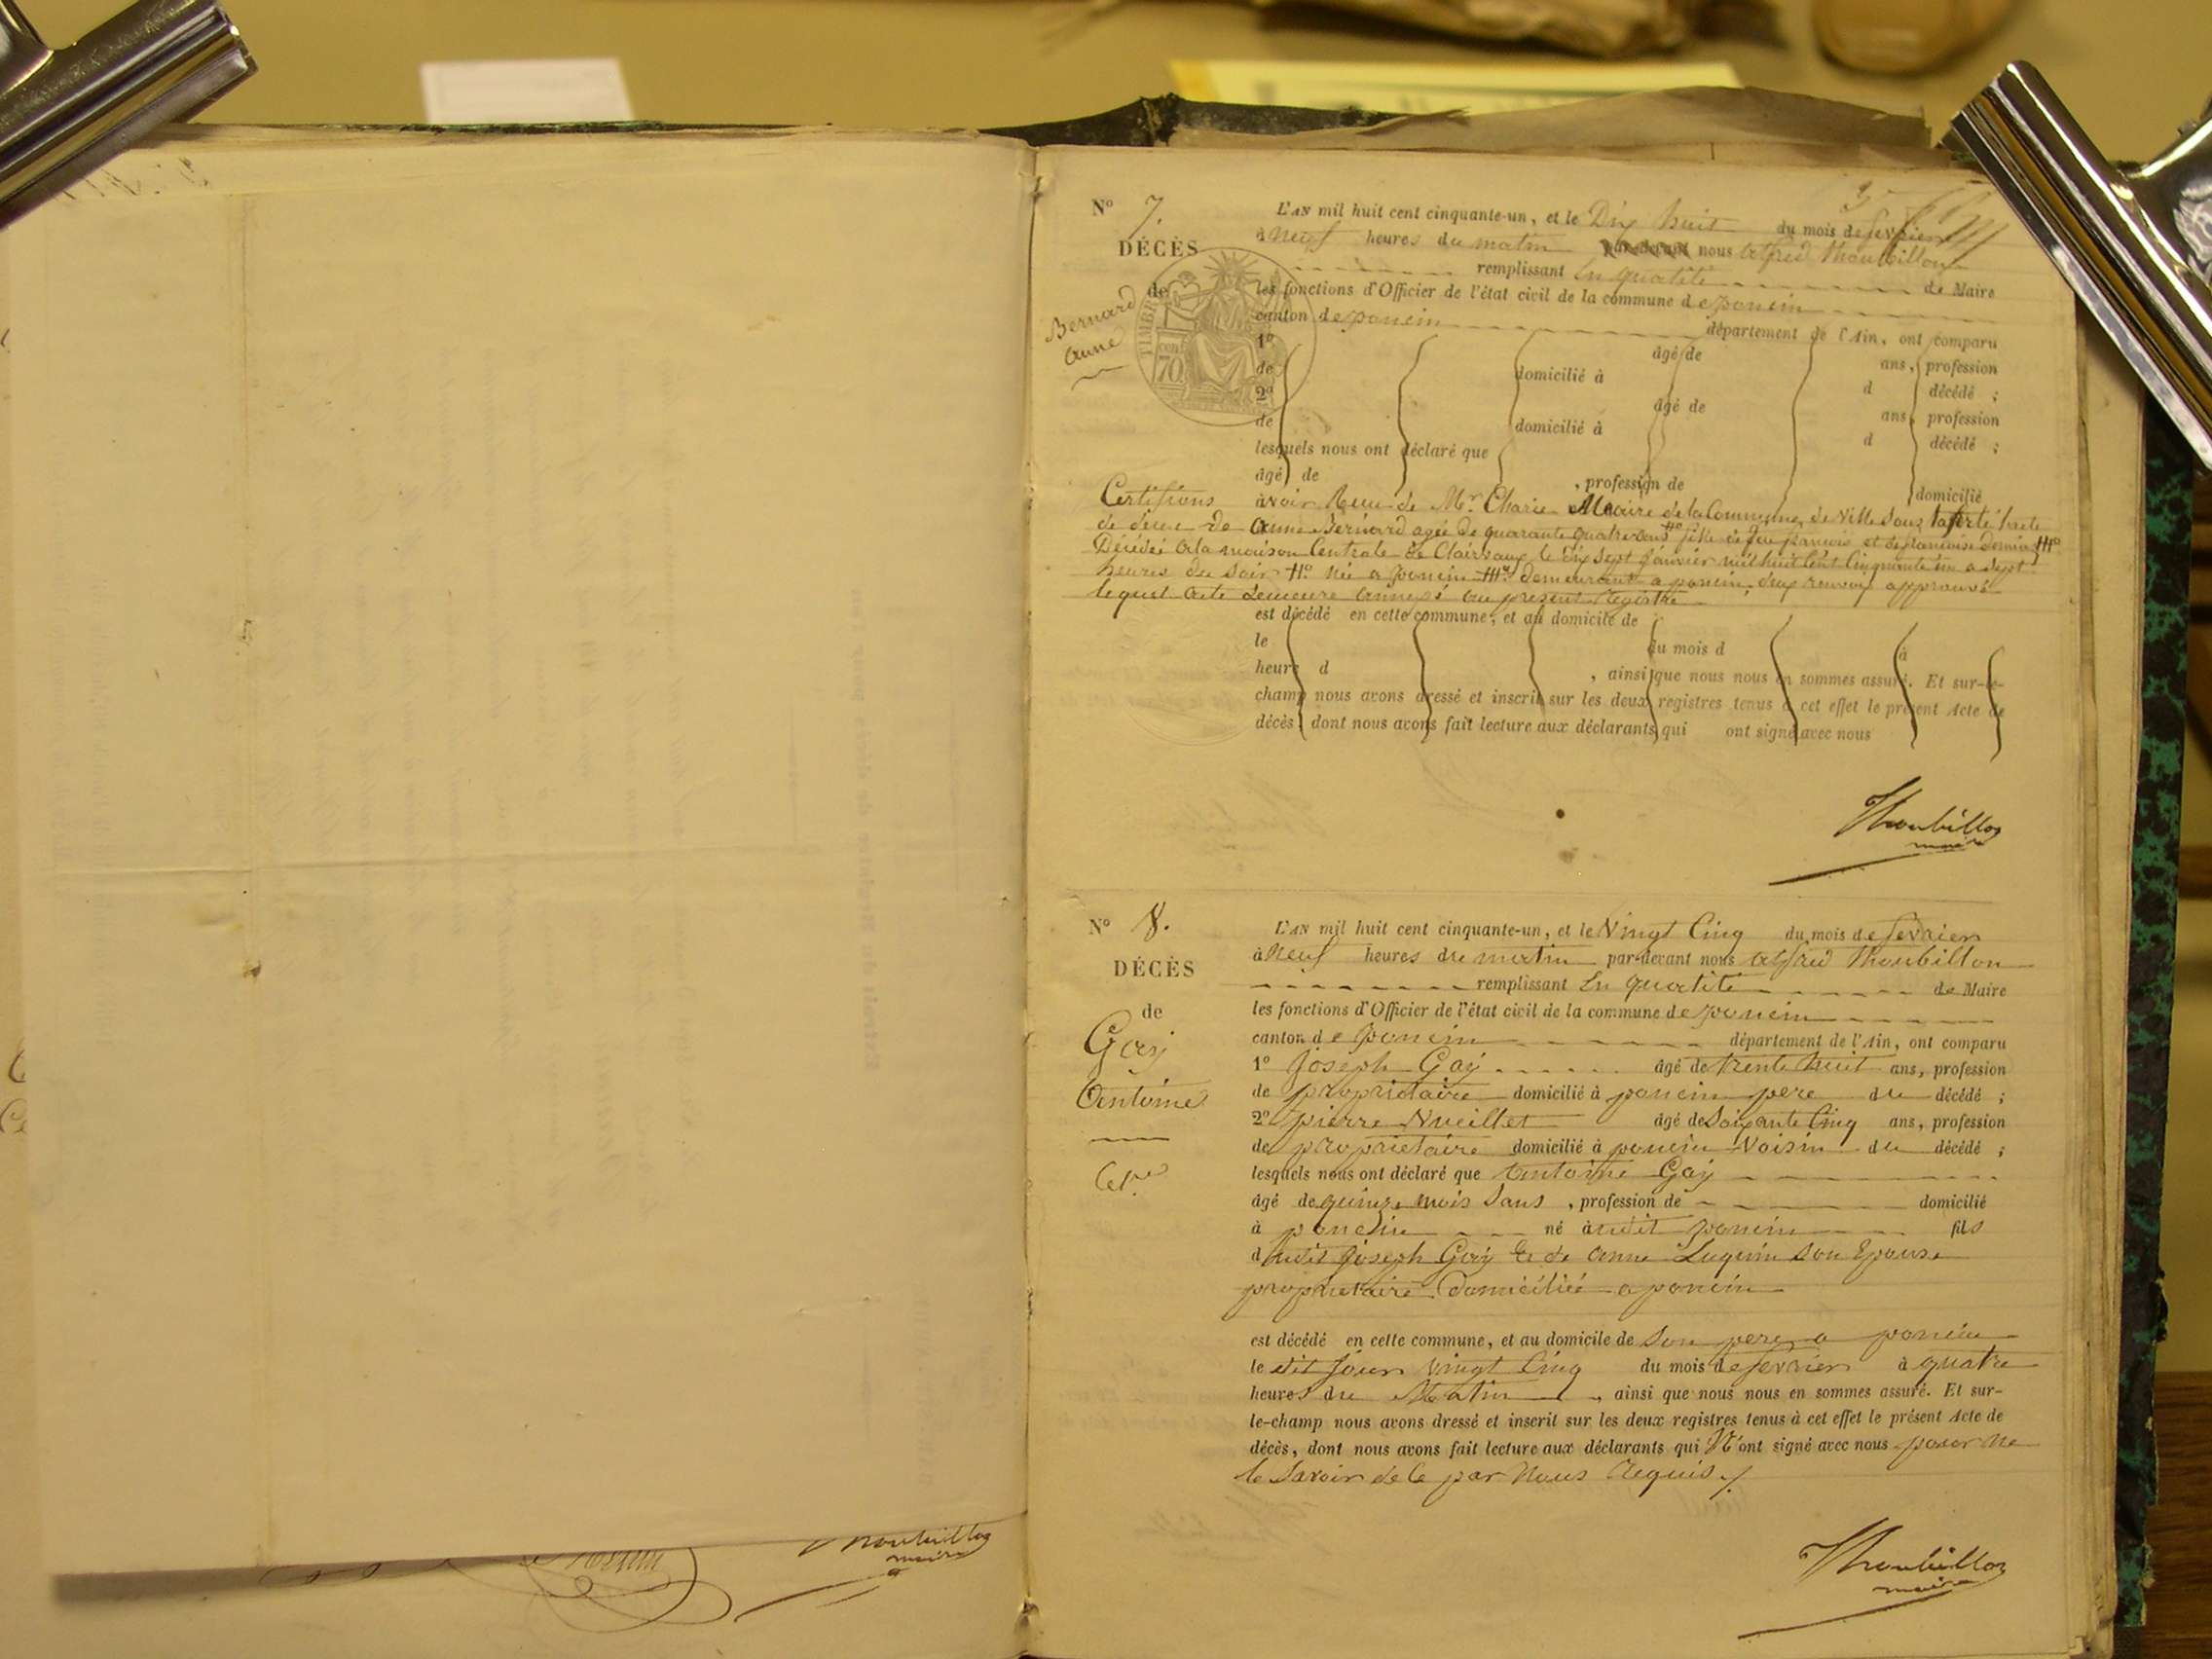 N° 7.
DÉCÈS
de
Bernard
anne
TIMBRE
cent
70
L'AN mil huit cent cinquante-un, et le Dix huit du mois de fevrier
à Neuf heures du matin par-devant nous alfred Thoubillon
remplissant En qualité de Maire
les fonctions d'Officier de l'état civil de la commune de poncin
canton de poncin département de l'Ain, ont comparu
1° âgé de ans, profession
de domicilié à d décédé ;
2° âgé de ans, profession
de domicilié à d décédé ;
lesquels nous ont déclaré que
âgé de , profession de domicilié
Certifions avoir Recu de Mr. Maire de la Commune de Ville sous laferté
de de anne Bernard agée de quarante quatre ans #° fille de feu francois et de francoise
Décédée a la maison Centrale de Clairvaux le dix sept Janvier mil huit Cent Cinquante un a Sept
heures du Soir #° née a poncin demeurant a poncin, deux renvois approuvé
lequel acte demeure annexé au present Registre
est décédé en cette commune, et au domicile de
le du mois d à
heure d , ainsi que nous nous en sommes assuré. Et sur-le-
champ nous avons dressé et inscrit sur les deux registres tenus à cet effet le présent Acte de
décès, dont nous avons fait lecture aux déclarants qui ont signé avec nous
Thoubillon
maire
N° 8.
DÉCÈS
de
Gay
Antoine
L'AN mil huit cent cinquante-un, et le Vingt Cinq du mois de fevrier
à Neuf heures du matin par-devant nous alfred Thoubillon
remplissant En qualité de Maire
les fonctions d'Officier de l'état civil de la commune de poncin
canton de poncin département de l'Ain, ont comparu
1° Joseph Gay âgé de trente huit ans, profession
de propriétaire domicilié à poncin pere du décédé ;
2° pierre Nueillet âgé de Soixante Cinq ans, profession
de propriétaire domicilié à poncin Voisin du décédé ;
lesquels nous ont déclaré que Antoine Gay
âgé de quinze mois Sans , profession de domicilié
à poncin né à udit poncin fils
dudit Joseph Gay Et de anne Luquin Son Epouse
propriétaire Domiciliée a poncin
est décédé en cette commune, et au domicile de Son pere a poncin
le dit Jour Vingt Cinq du mois de fevrier à quatre
heures du Matin , ainsi que nous nous en sommes assuré. Et sur-
le-champ nous avons dressé et inscrit sur les deux registres tenus à cet effet le présent Acte de
décès, dont nous avons fait lecture aux déclarants qui N'ont signé avec nous pour ne
le Savoir de Ce par Nous Requis ./.
Thoubillon
maire
Thoubillon
maire